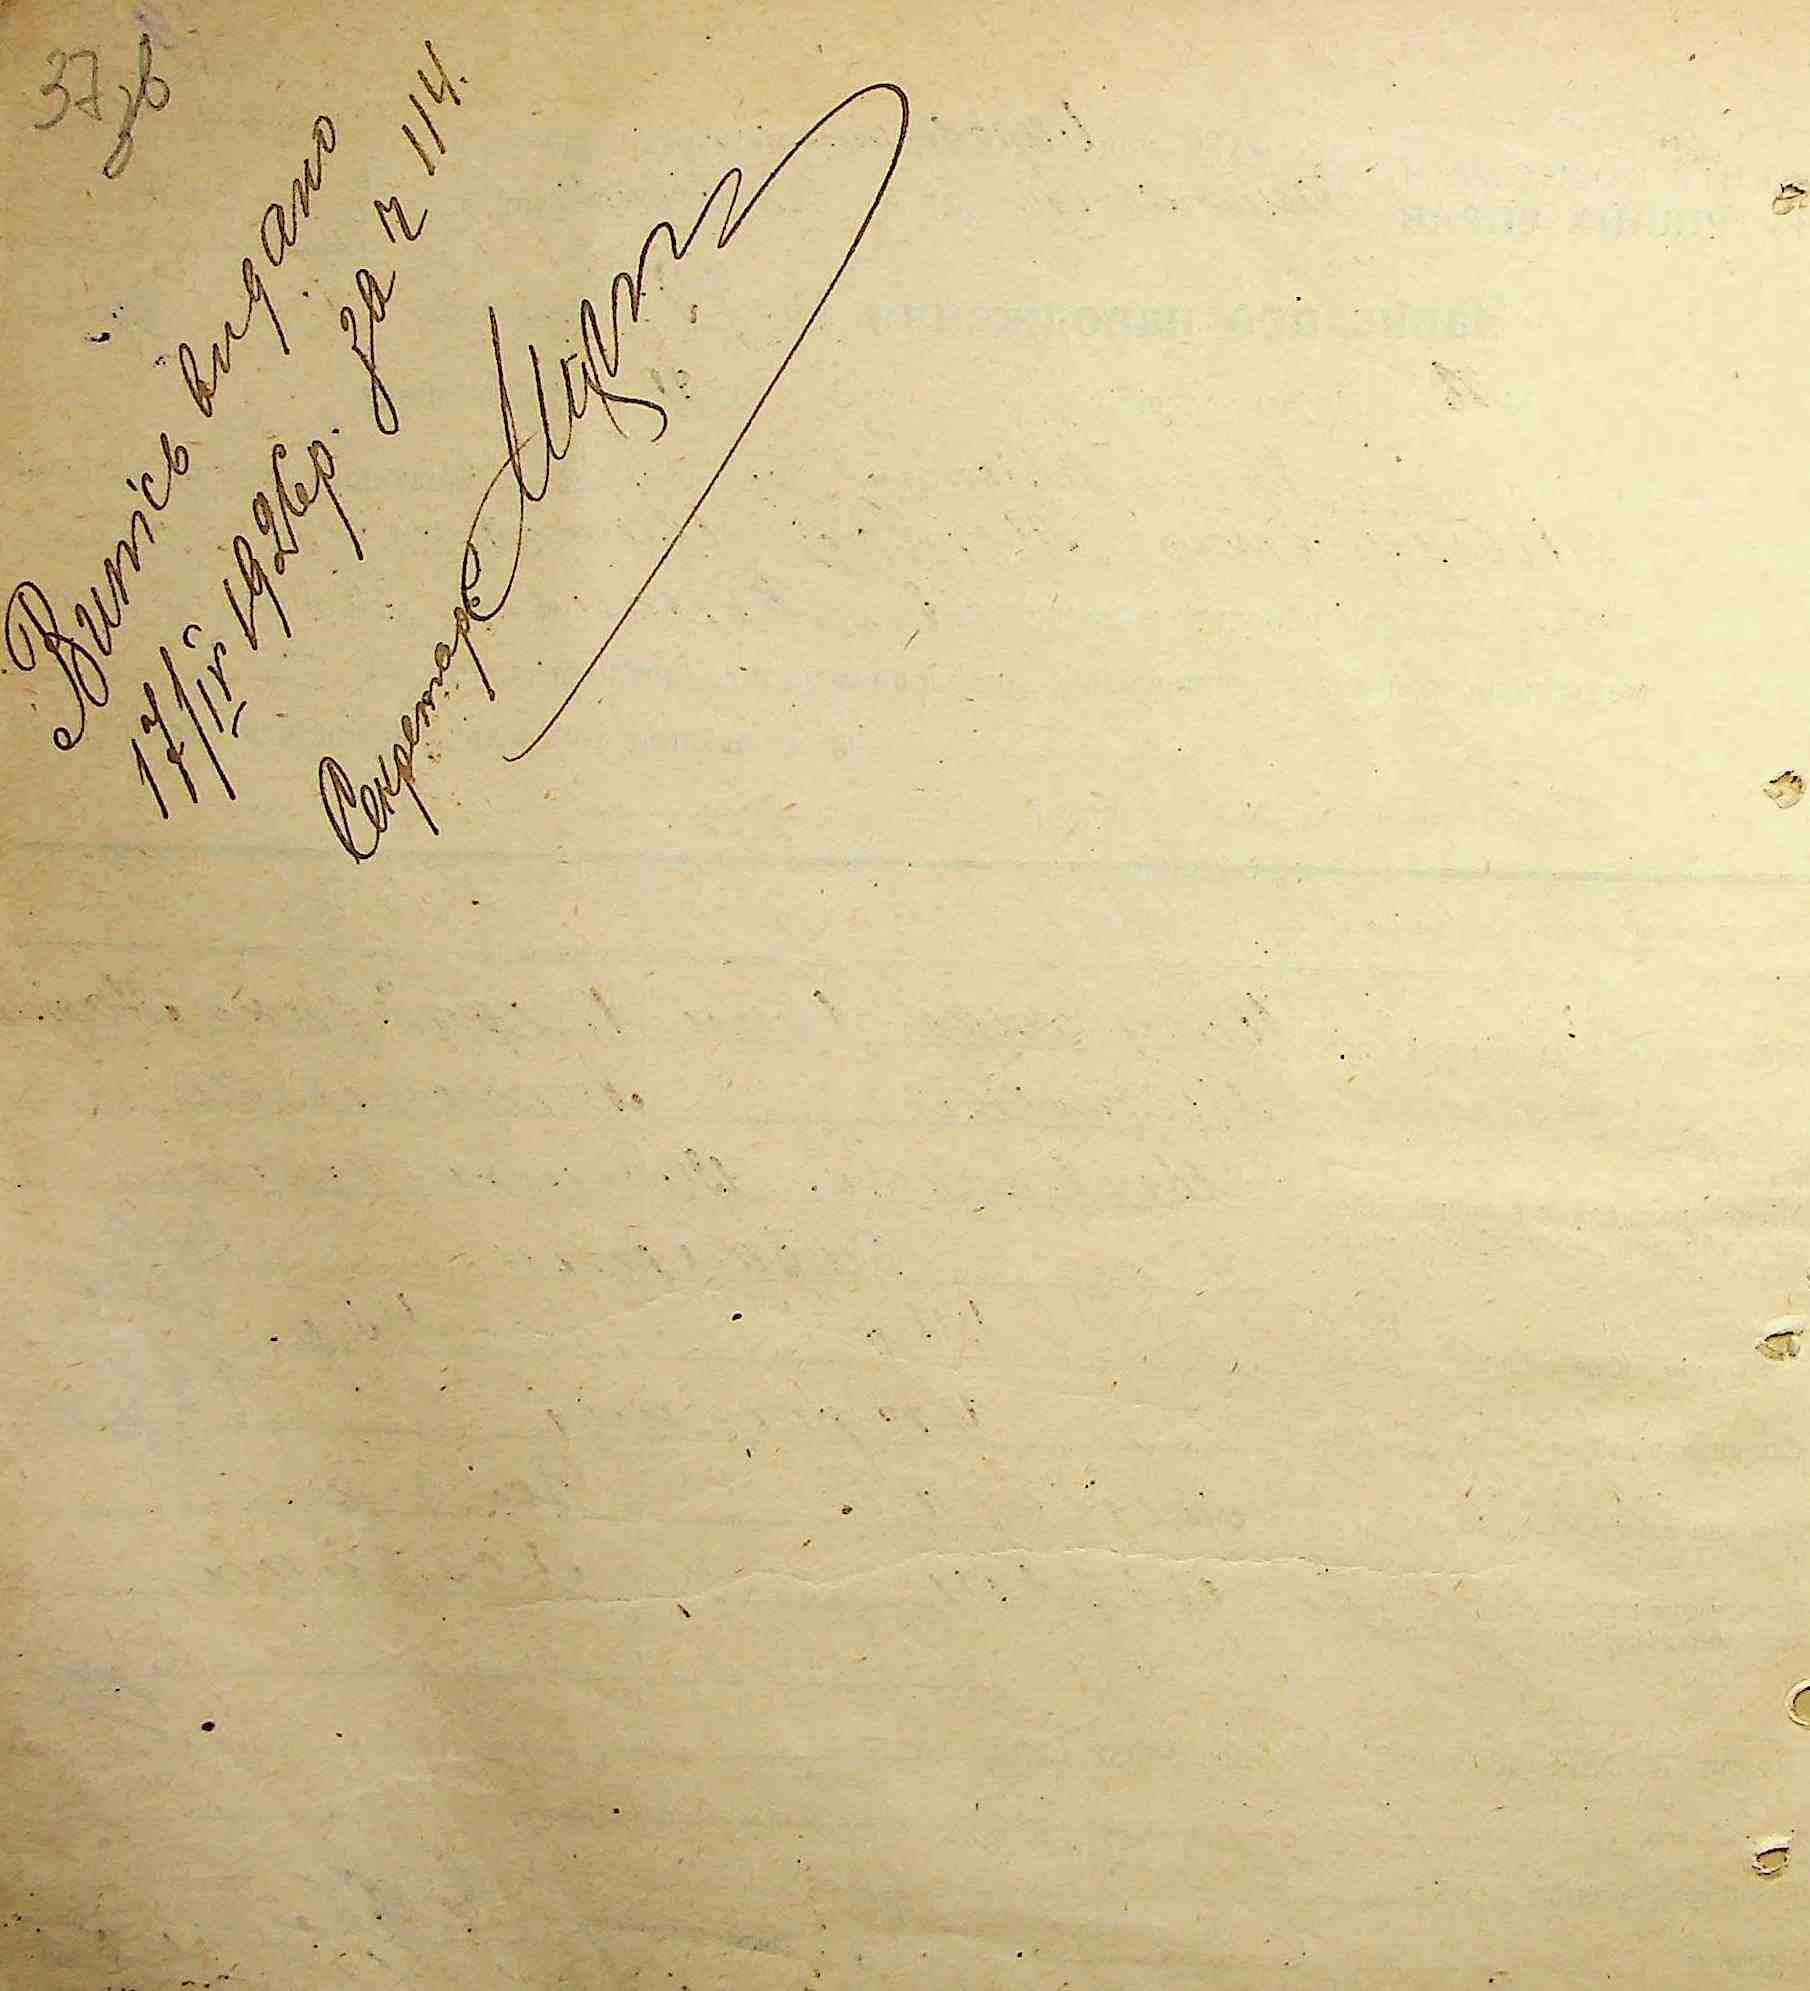 37зв
Випись видано
17/IV 1926 р. за № 114.
Секретарь